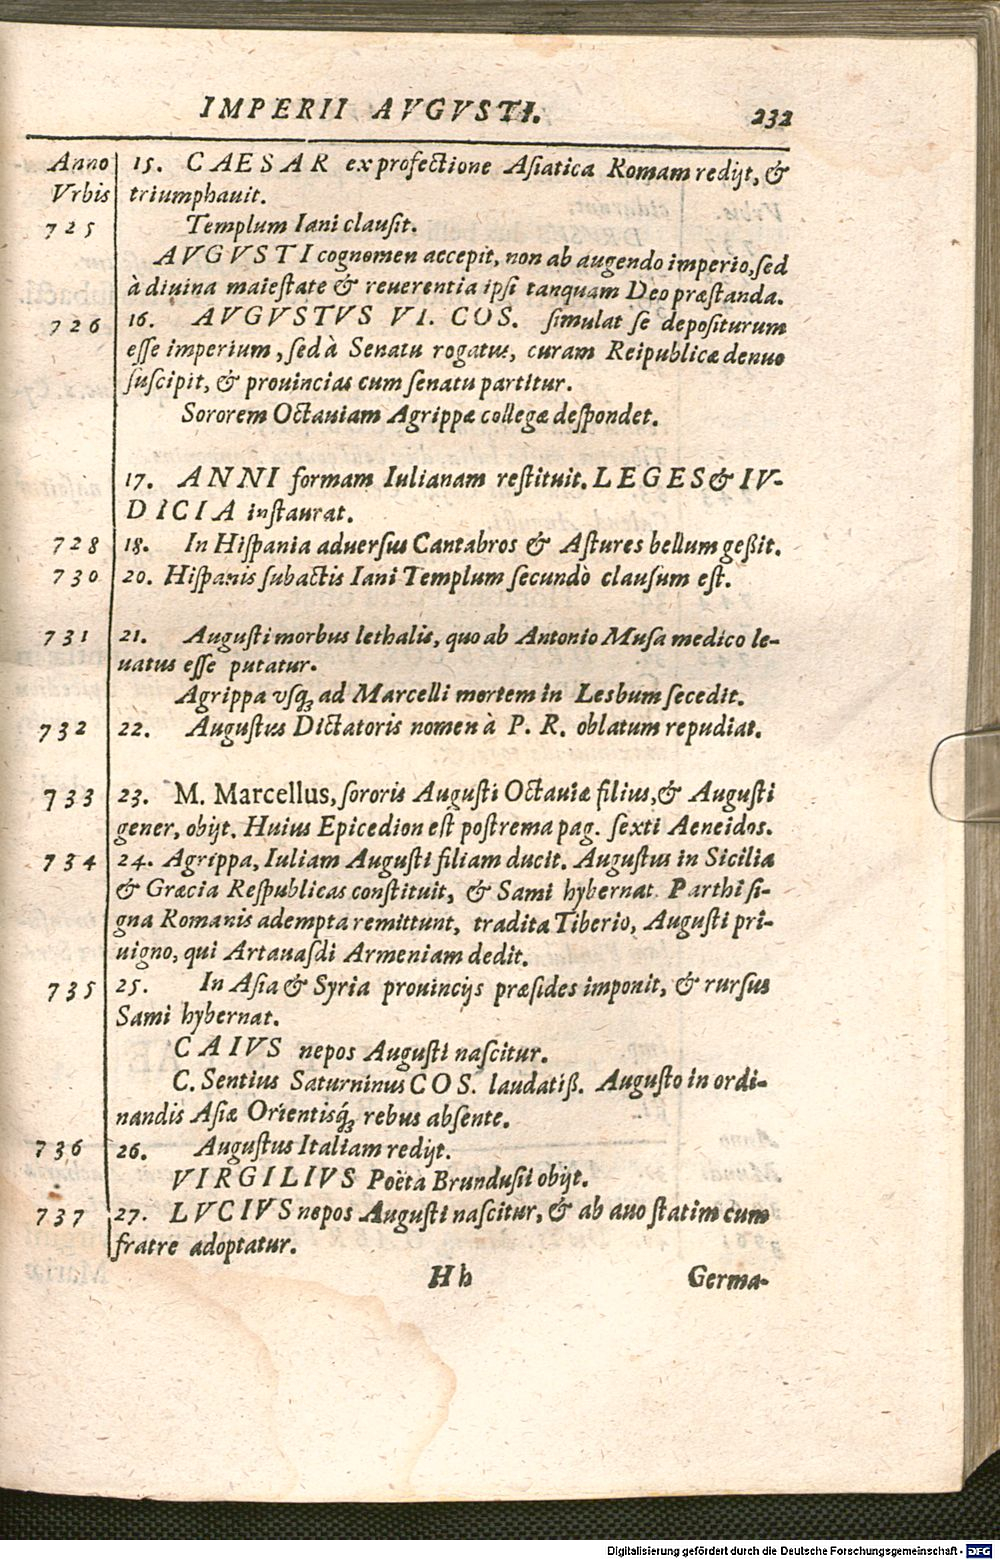 IMPERII AVGVSTI. 232
Anno 15. CAESAR ex profectione Asiatica Romam redijt, &
Vrbis triumphauit.
725 Templum Iani clausit.
AVGVSTI cognomen accepit, non ab augendo imperio, sed
à diuina maiestate & reuerentia ipsi tanquam Deo præstanda.
726 16. AVGVSTVS VI. COS. simulat se depositurum
esse imperium, sed à Senatu rogatus, curam Reipublicæ denuo
suscipit, & prouincias cum senatu partitur.
Sororem Octauiam Agrippæ collegæ despondet.
17. ANNI formam Iulianam restituit. LEGES & IV-
DICIA instaurat.
728 18. In Hispania aduersus Cantabros & Astures bellum geßit.
730 20. Hispanis subactis Iani Templum secundò clausum est.
731 21. Augusti morbus lethalis, quo ab Antonio Musa medico le-
uatus esse putatur.
Agrippa vsq́; ad Marcelli mortem in Lesbum secedit.
732 22. Augustus Dictatoris nomen à P. R. oblatum repudiat.
733 23. M. Marcellus, sororis Augusti Octauiæ filius, & Augusti
gener, obijt. Huius Epicedion est postrema pag. sexti Aeneidos.
734 24. Agrippa, Iuliam Augusti filiam ducit. Augustus in Sicilia
& Græcia Respublicas constituit, & Sami hybernat. Parthi si-
gna Romanis adempta remittunt, tradita Tiberio, Augusti pri-
uigno, qui Artauasdi Armeniam dedit.
735 25. In Asia & Syria prouincijs præsides imponit, & rursus
Sami hybernat.
CAIVS nepos Augusti nascitur.
C. Sentius Saturninus COS. laudatiß. Augusto in ordi-
nandis Asiæ Orientisq́; rebus absente.
736 26. Augustus Italiam redijt.
VIRGILIVS Poëta Brundusii obijt.
737 27. LVCIVS nepos Augusti nascitur, & ab auo statim cum
fratre adoptatur.
Hh Germa-
Digitalisierung gefördert durch die Deutsche Forschungsgemeinschaft - DFG